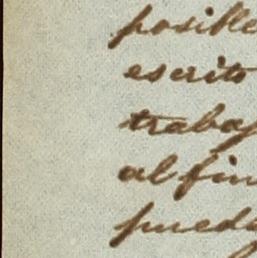 posible
escrito
trabaj
al fin
puede